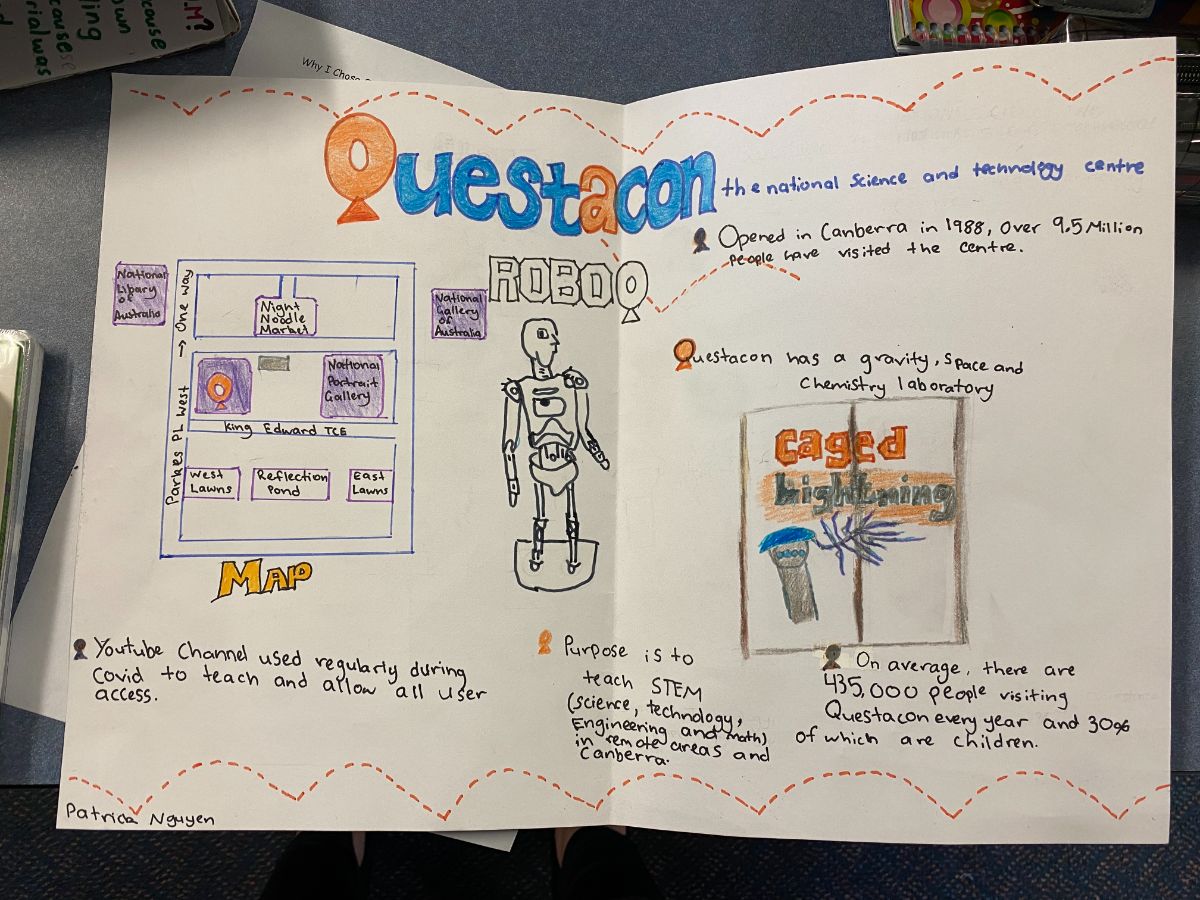 .M?
cause
ing
own
cause
rial was
Why I Chose
Questacon
the national Science and technology centre
Opened in Canberra in 1988, Over 9.5 Million
People have visited the centre.
National
Libary
of
Australia
Parkes PL West → One way
Night
Noodle
Market
National
Portrait
Gallery
King Edward TCE
West
Lawns
Reflection
Pond
East
Lawns
MAP
National
Gallery
of
Australia
ROBOQ
Questacon has a gravity, Space and
Chemistry laboratory
caged
lightning
Youtube Channel used regularly during
Covid to teach and allow all user
access.
Purpose is to
teach STEM
(science, technology,
Engineering and math)
in remote areas and
Canberra.
On average, there are
435,000 people visiting
Questacon every year and 30%
of which are children.
Patrica Nguyen